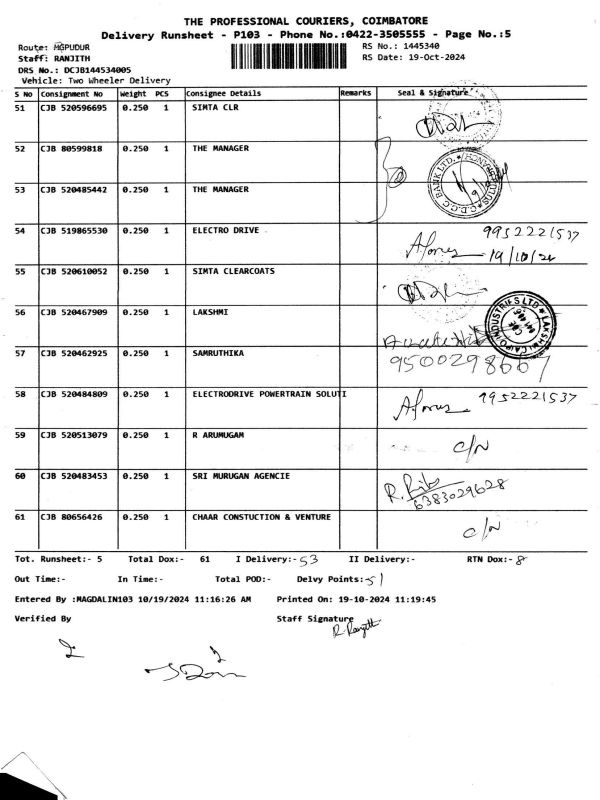 THE PROFESSIONAL COURIERS, COIMBATORE
Delivery Runsheet - P103 - Phone No.:0422-3505555 - Page No.:5
Route: MGPUDUR
RS No.: 1445340
Staff: RANJITH
RS Date: 19-Oct-2024
DRS No.: DCJB144534005
Vehicle: Two Wheeler Delivery
S No Consignment No Weight PCS Consignee Details Remarks Seal & Signature
51 CJB 520596695 0.250 1 SIMTA CLR
52 CJB 80599818 0.250 1 THE MANAGER
53 CJB 520485442 0.250 1 THE MANAGER
54 CJB 519865530 0.250 1 ELECTRO DRIVE 9952221537
19/10/24
55 CJB 520610052 0.250 1 SIMTA CLEARCOATS
56 CJB 520467909 0.250 1 LAKSHMI
57 CJB 520462925 0.250 1 SAMRUTHIKA 9500298667
58 CJB 520484809 0.250 1 ELECTRODRIVE POWERTRAIN SOLUTI 9952221537
59 CJB 520513079 0.250 1 R ARUMUGAM C/N
60 CJB 520483453 0.250 1 SRI MURUGAN AGENCIE 6383029628
61 CJB 80656426 0.250 1 CHAAR CONSTUCTION & VENTURE C/N
Tot. Runsheet:- 5 Total Dox:- 61 I Delivery:- 53 II Delivery:- RTN Dox:- 8
Out Time:- In Time:- Total POD:- Delvy Points:- 51
Entered By :MAGDALIN103 10/19/2024 11:16:26 AM Printed On: 19-10-2024 11:19:45
Verified By Staff Signature
R. Ranjith